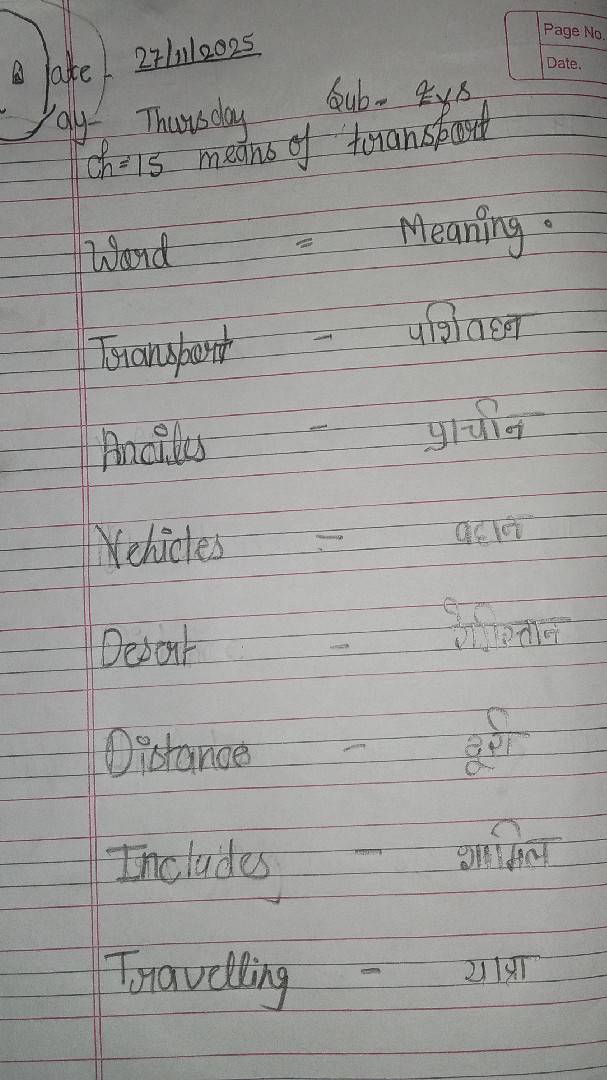 Page No.
Date.
Date - 27/11/2025
Day - Thursday Sub - EVS
Ch = 15 means of transport
Word = Meaning.
Transport - परिवहन
- प्राचीन
Vehicles = वहान
Desert - रेगिस्तान
Distance - दूरी
Includes - शामिल
Travelling - यात्रा